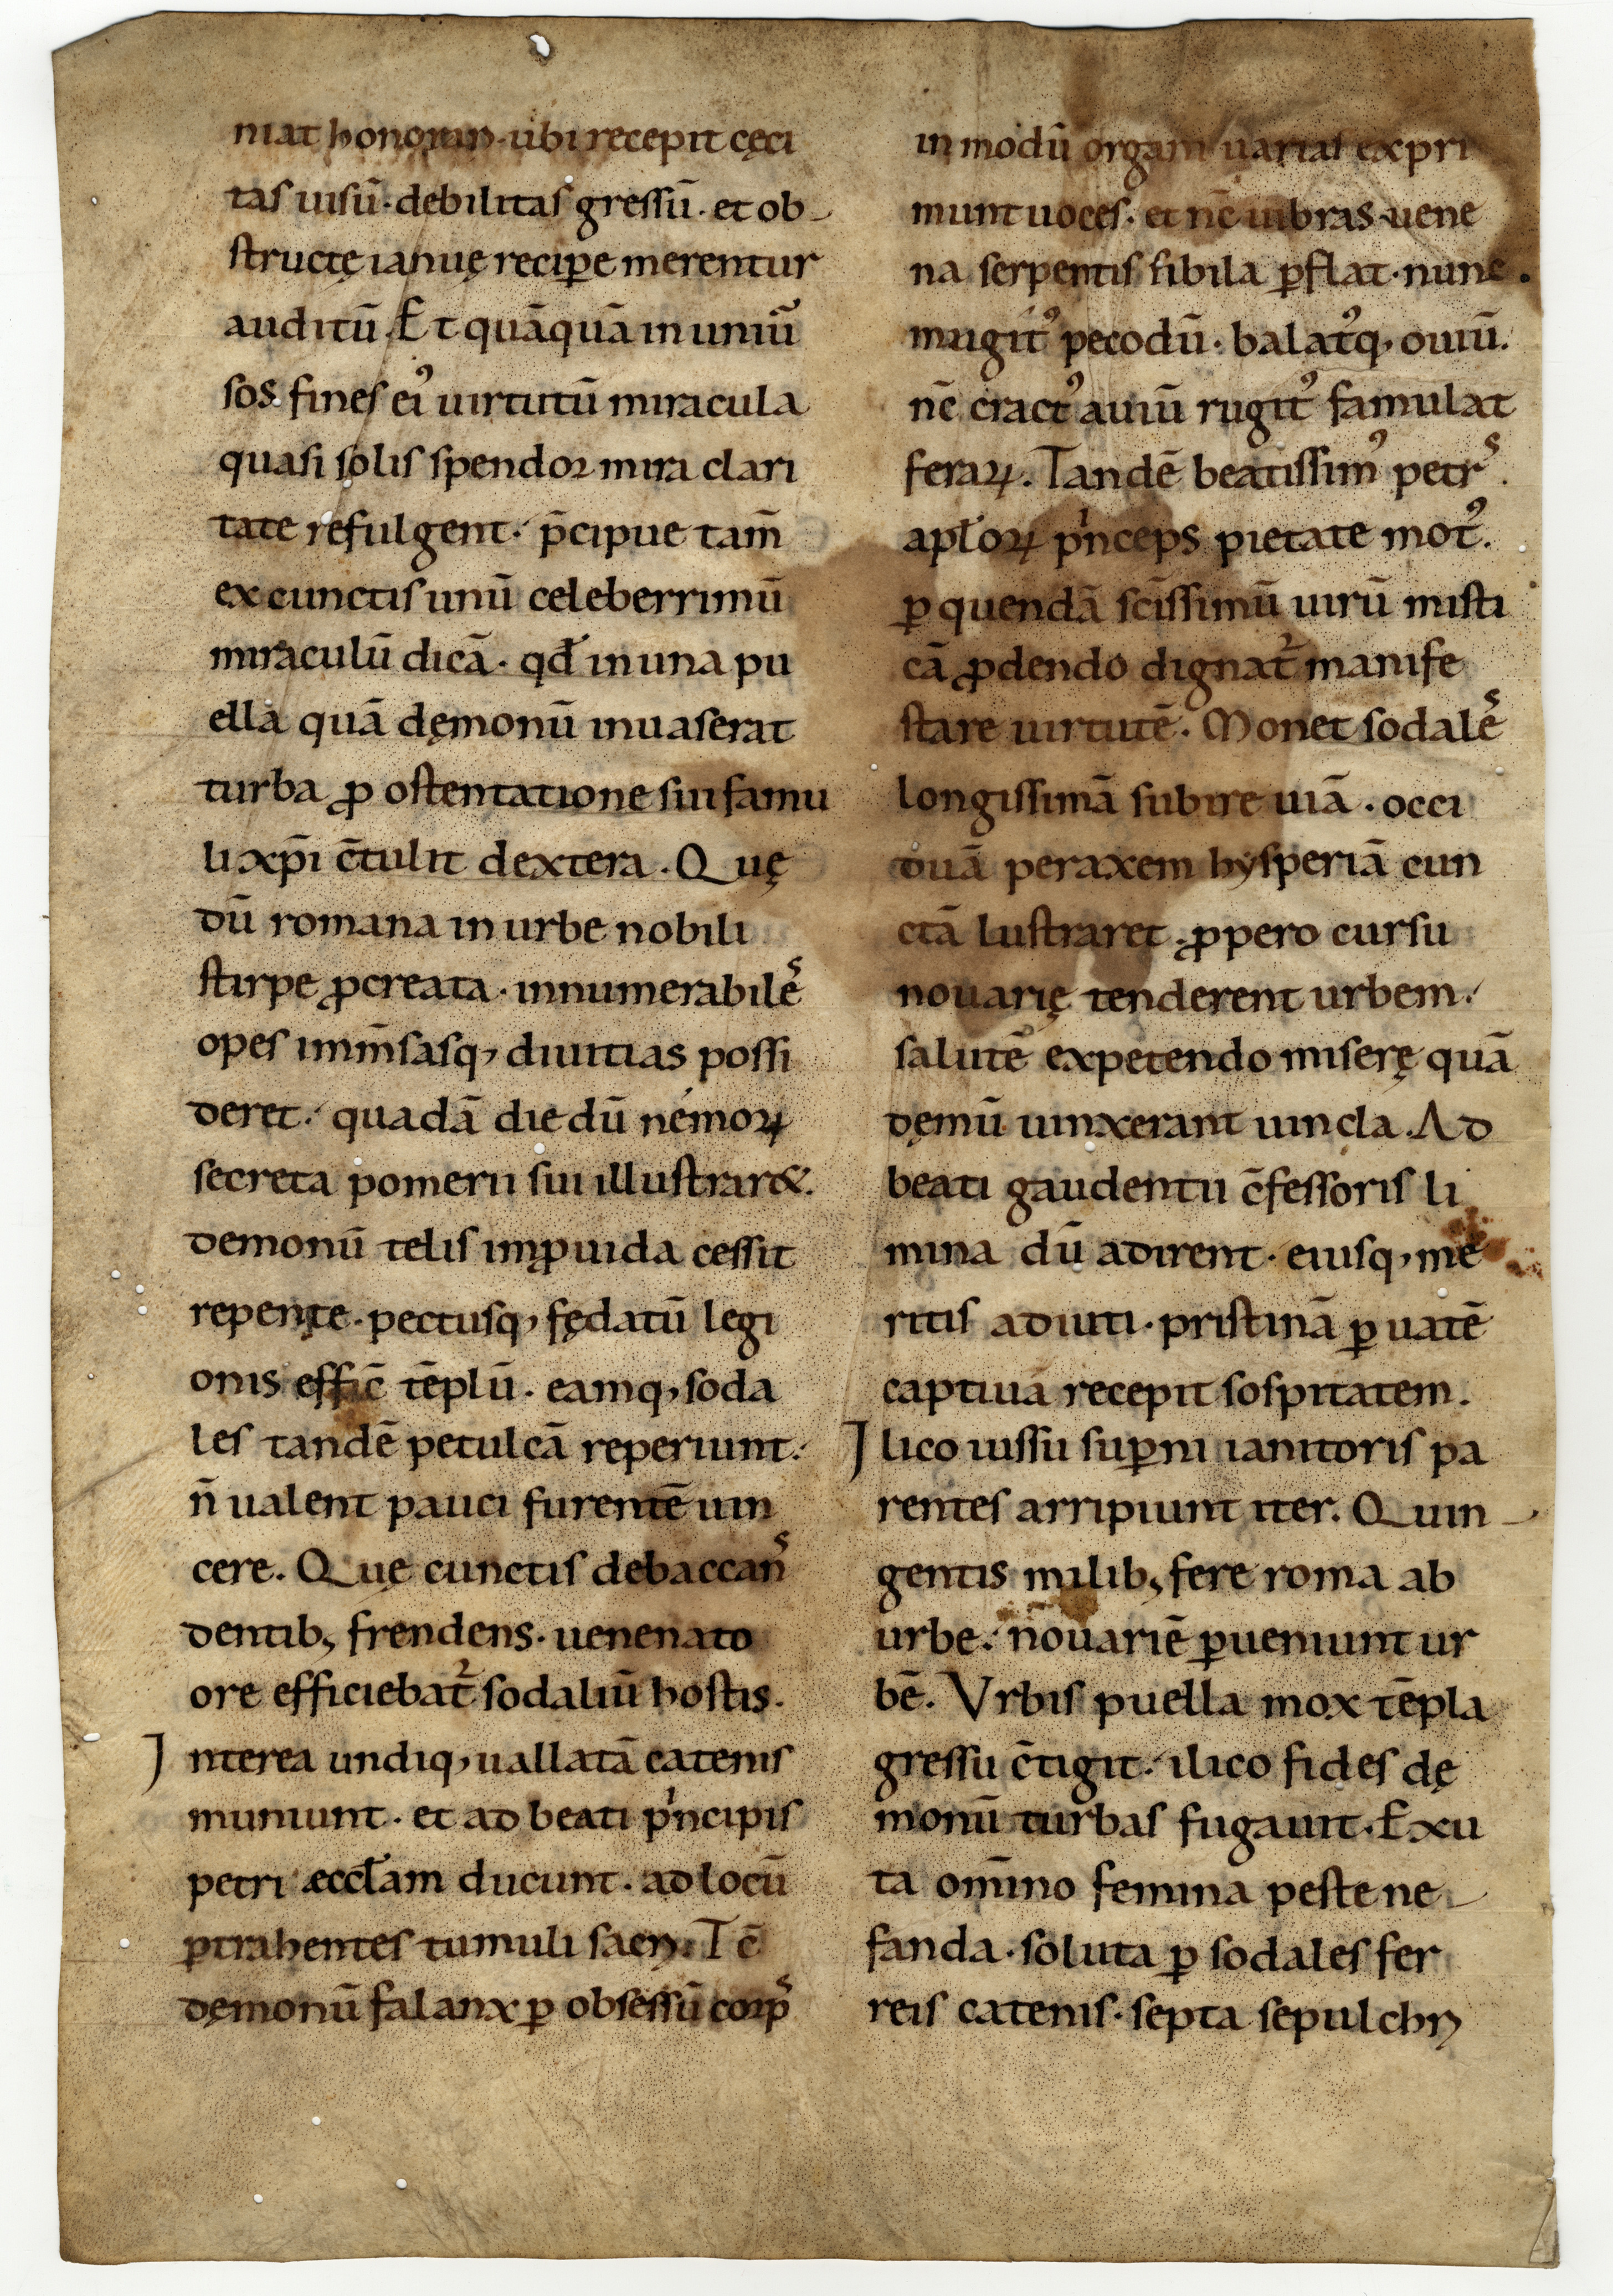 niat honorum· ubi recepit cęci
tas uisū· debilitas gressū· et ob-
structę ianuę recip̄e merentur
auditū. Et quāquā in uniu͂
sos fines ei᾿ uirtutū miracula
quasi solis spendor mira clari
tate refulgent· p̄cipue tam̄
ex cunctis unū celeberrimū
miraculū dicā· qd̄ in una pu
ella quā dęmonū inuaserat
turba ꝓ ostentatione sui famu
li xp̄i c̄tulit dextera. Quę
dū romana in urbe nobili
stirpe ꝓcreata· innumerabilēˢ
opes imm̄sasq, diuitias possi
deret· quadā die dū nemoꝝ
secreta pomerii sui illustrar&.
demonū telis imꝓuida cessit
repente· pectusq, fędatū legi
onis effic̄ tēplū· eamq, soda
les tandē petulcā reperiunt·
n̄ ualent pauci furentē uin
cere. Quę cunctis debaccan̄ˢ
dentib; frendens· uenenato
ore efficiebat᷑ sodaliū hostis.
Interea undiq, uallatā catenis
muniunt· et ad beati pⁱncipis
petri æccłam ducunt· ad locū
ꝑtrahentes tumuli sacri. Tc̄
dęmonū falanx ꝑ obsessū corpˢ
in modū organi uarias expri
munt uoces· et nc̄ uibras uene
na serpentis sibila ꝑflat· nunc
mugitꝰ pecodū· balatꝰq, ouiū.
nc̄ cractꝰ auiū rugitꝰ famulat
feraꝝ. Tandē beatissimꝰ petrˢ.
apłoꝝ pⁱnceps pietate motꝰ.
ꝑ quendā sc̄issimū uirū misti
cā ꝓdendo dignat᷑ manife
stare uirtutē. Monet sodalēˢ
longissimā subire uiā· occi
duā per axem hysperiā cun
ctā lustraret· ꝓpero cursu
nouarię tenderent urbem·
salutē expetendo miserę quā
dęmū uinxerant uincla. Ad
beati gaudentii c̄fessoris li
mina dū adirent· eiusq, me
ritis adiuti· pristinā ꝑ uatē
captiuā recepit sospitatem.
Ilico iussu suꝑni ianitoris pa
rentes arripiunt iter. Quin-
gentis milib; fere roma ab
urbe· nouariē ꝑueniunt ur
bē. Vrbis puella mox tēpla
gressu c̄tigit· ilico fides dę
monū turbas fugauit. Exu
ta om̄ino femina peste ne-
fanda· soluta ꝑ sodales fer
reis catenis· septa sepulchri